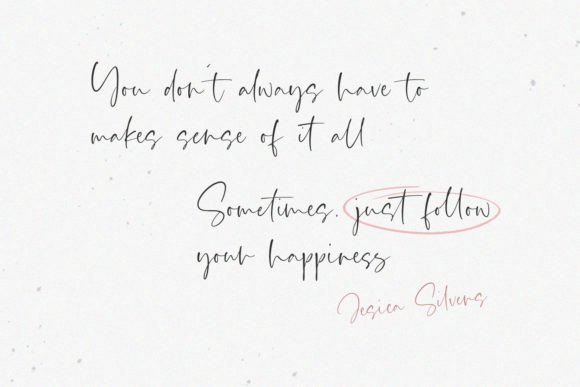 You don't always have to
makes sense of it all
Sometimes, just follow
your happiness
Jesica Silvens